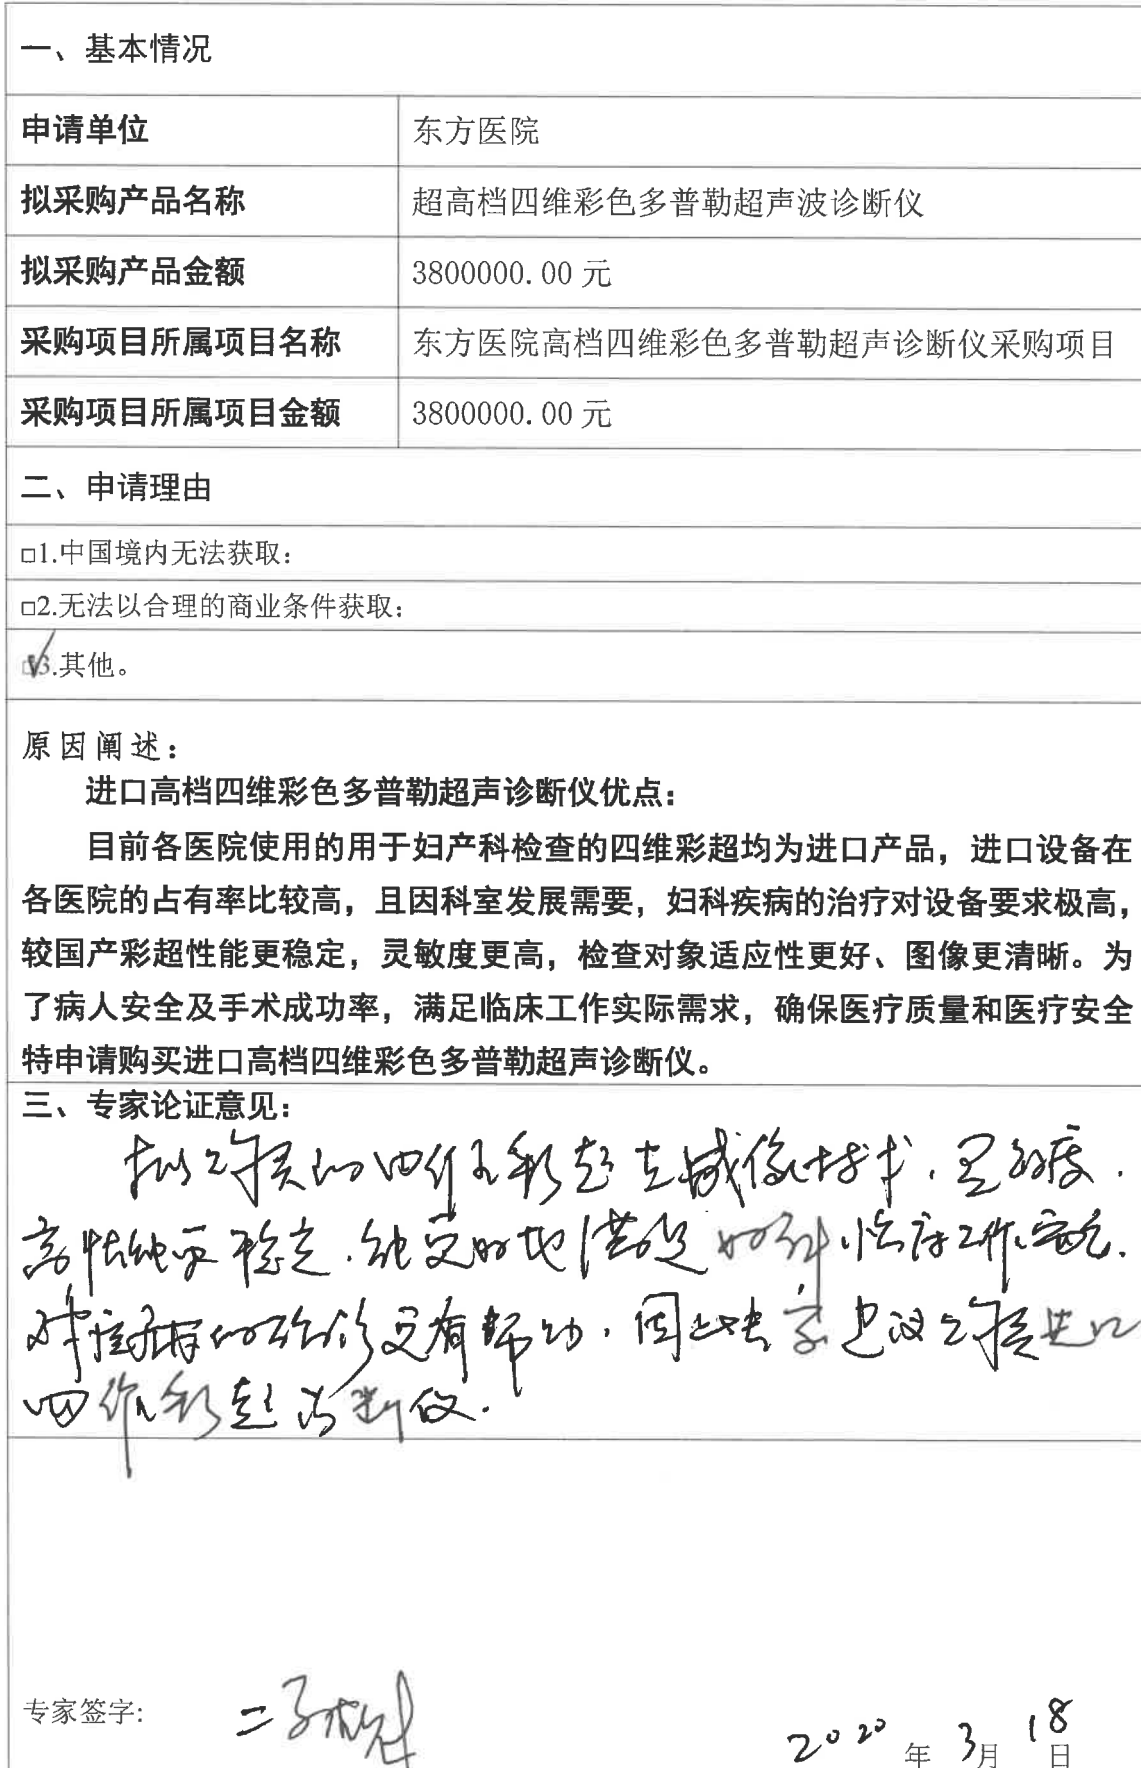 一、基本情况
申请单位 东方医院
拟采购产品名称 超高档四维彩色多普勒超声波诊断仪
拟采购产品金额 3800000.00 元
采购项目所属项目名称 东方医院高档四维彩色多普勒超声诊断仪采购项目
采购项目所属项目金额 3800000.00 元
二、申请理由
□1.中国境内无法获取：
□2.无法以合理的商业条件获取；
☑3.其他。
原因阐述：
进口高档四维彩色多普勒超声诊断仪优点：
目前各医院使用的用于妇产科检查的四维彩超均为进口产品，进口设备在
各医院的占有率比较高，且因科室发展需要，妇科疾病的治疗对设备要求极高，
较国产彩超性能更稳定，灵敏度更高，检查对象适应性更好、图像更清晰。为
了病人安全及手术成功率，满足临床工作实际需求，确保医疗质量和医疗安全
特申请购买进口高档四维彩色多普勒超声诊断仪。
三、专家论证意见：
拟的四维彩超在成像技术，灵敏度，
高性能更稳定，能更好地满足妇科临床工作
更有帮助，因此建议进口
四维彩超诊断仪。
专家签字:
2020 年 3月 18日